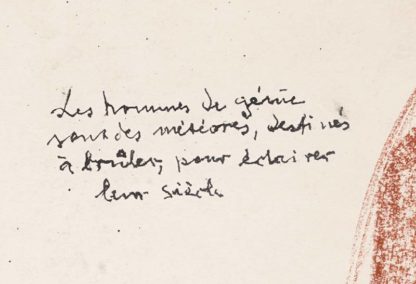 Les hommes de génie
sont des météores, destinés
à brûler, pour éclairer
leur siècle